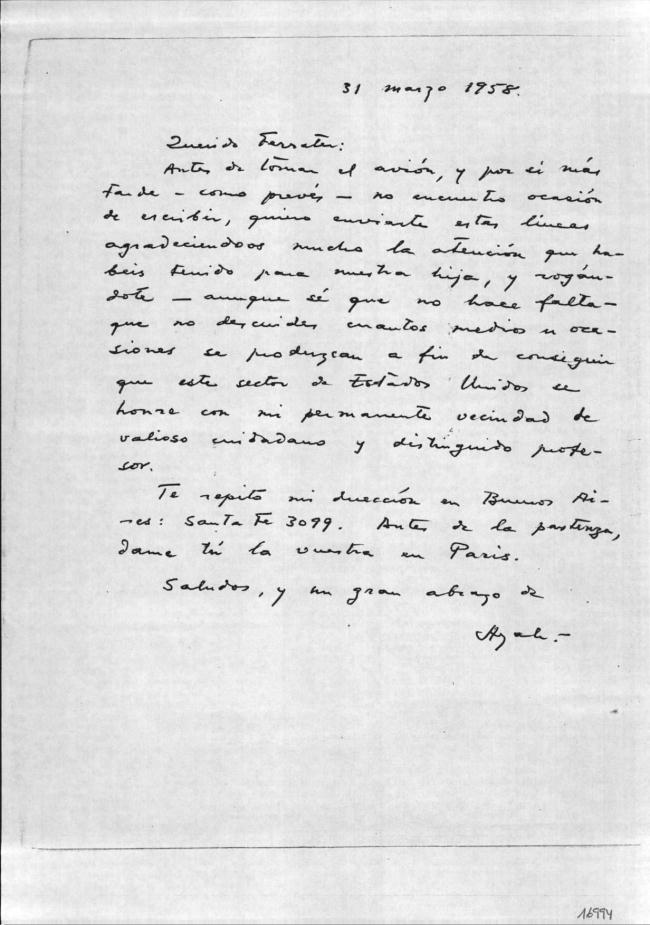 31 marzo 1958.
Querido Ferrater:
Antes de tomar el avión, y por si más
tarde – como prevés – no encuentro ocasión
de escribir, quiero enviarte estas líneas
agradeciendoos mucho la atención que ha-
béis tenido para nuestra hija, y rogán-
dote – aunque sé que no hace falta –
que no descuides cuantos medios u oca-
siones se produzcan a fin de conseguir
que este sector de Estados Unidos se
honre con mi permanente vecindad de
valioso ciudadano y distinguido profe-
sor.
Te repito mi dirección en Buenos Ai-
res: Santa Fe 3099. Antes de la partenza,
dame tú la vuestra en Paris.
Saludos, y un gran abrazo de
Ayala.–
16994